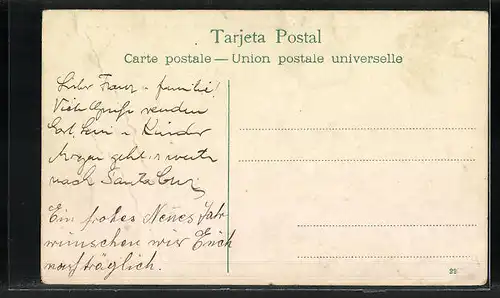 Tarjeta Postal
Carte postale — Union postale universelle
Lieber Franz u familie!
Viele Grüße senden
u Kinder
Morgen geht's weiter
nach Santa Cruz
Ein frohes Neues Jahr
wünschen wir Euch
nachträglich.
22